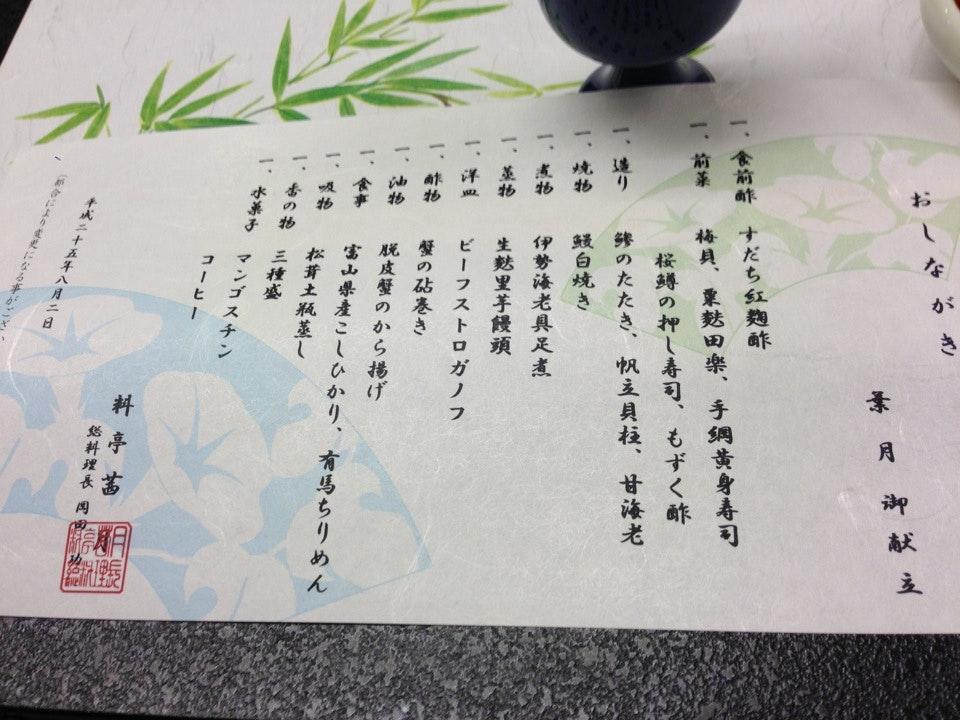 おしながき
葉月御献立
一、食前酢 すだち紅麹酢
一、前菜 梅貝、粟麩田楽、手綱黄身寿司
桜鱒の押し寿司、もずく酢
一、造り 鯵のたたき、帆立貝柱、甘海老
一、焼物 鰻白焼き
一、煮物 伊勢海老具足煮
一、蒸物 生麩里芋饅頭
一、洋皿 ビーフストロガノフ
一、酢物 蟹の砧巻き
一、油物 脱皮蟹のから揚げ
一、食事 富山県産こしひかり、有馬ちりめん
一、吸物 松茸土瓶蒸し
一、香の物 三種盛
一、水菓子 マンゴスチン
コーヒー
料亭 茜
総料理長 岡田 功
平成二十五年八月二日
(都合により変更になる事がござい